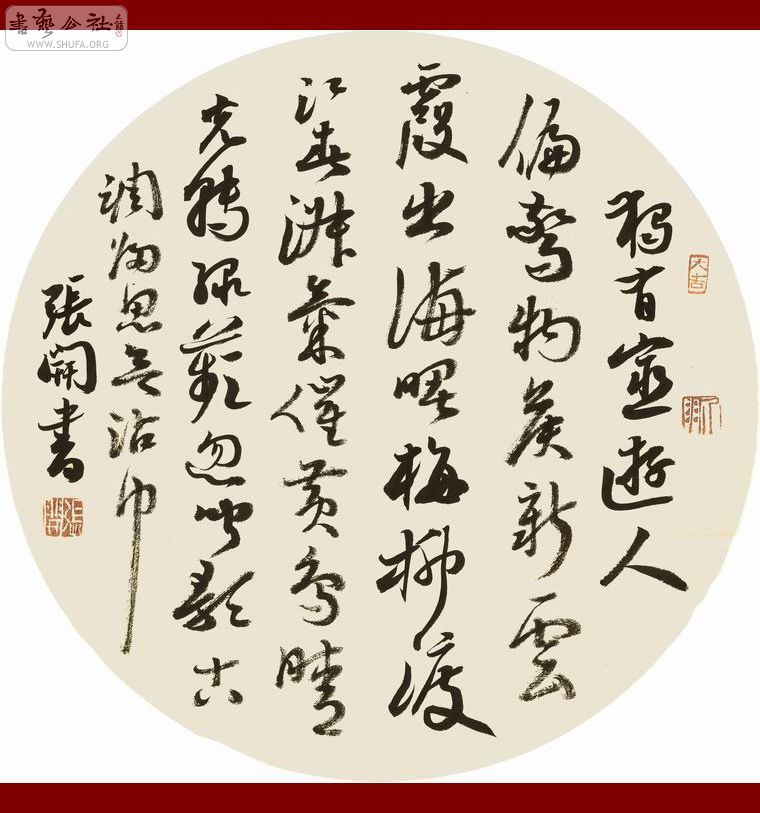 書藝公社
WWW.SHUFA.ORG
獨有宦遊人
偏驚物候新雲
霞出海曙梅柳渡
江春淑氣催黃鳥晴
光轉綠蘋忽聞歌古
調歸思欲沾巾
張開書
大吉